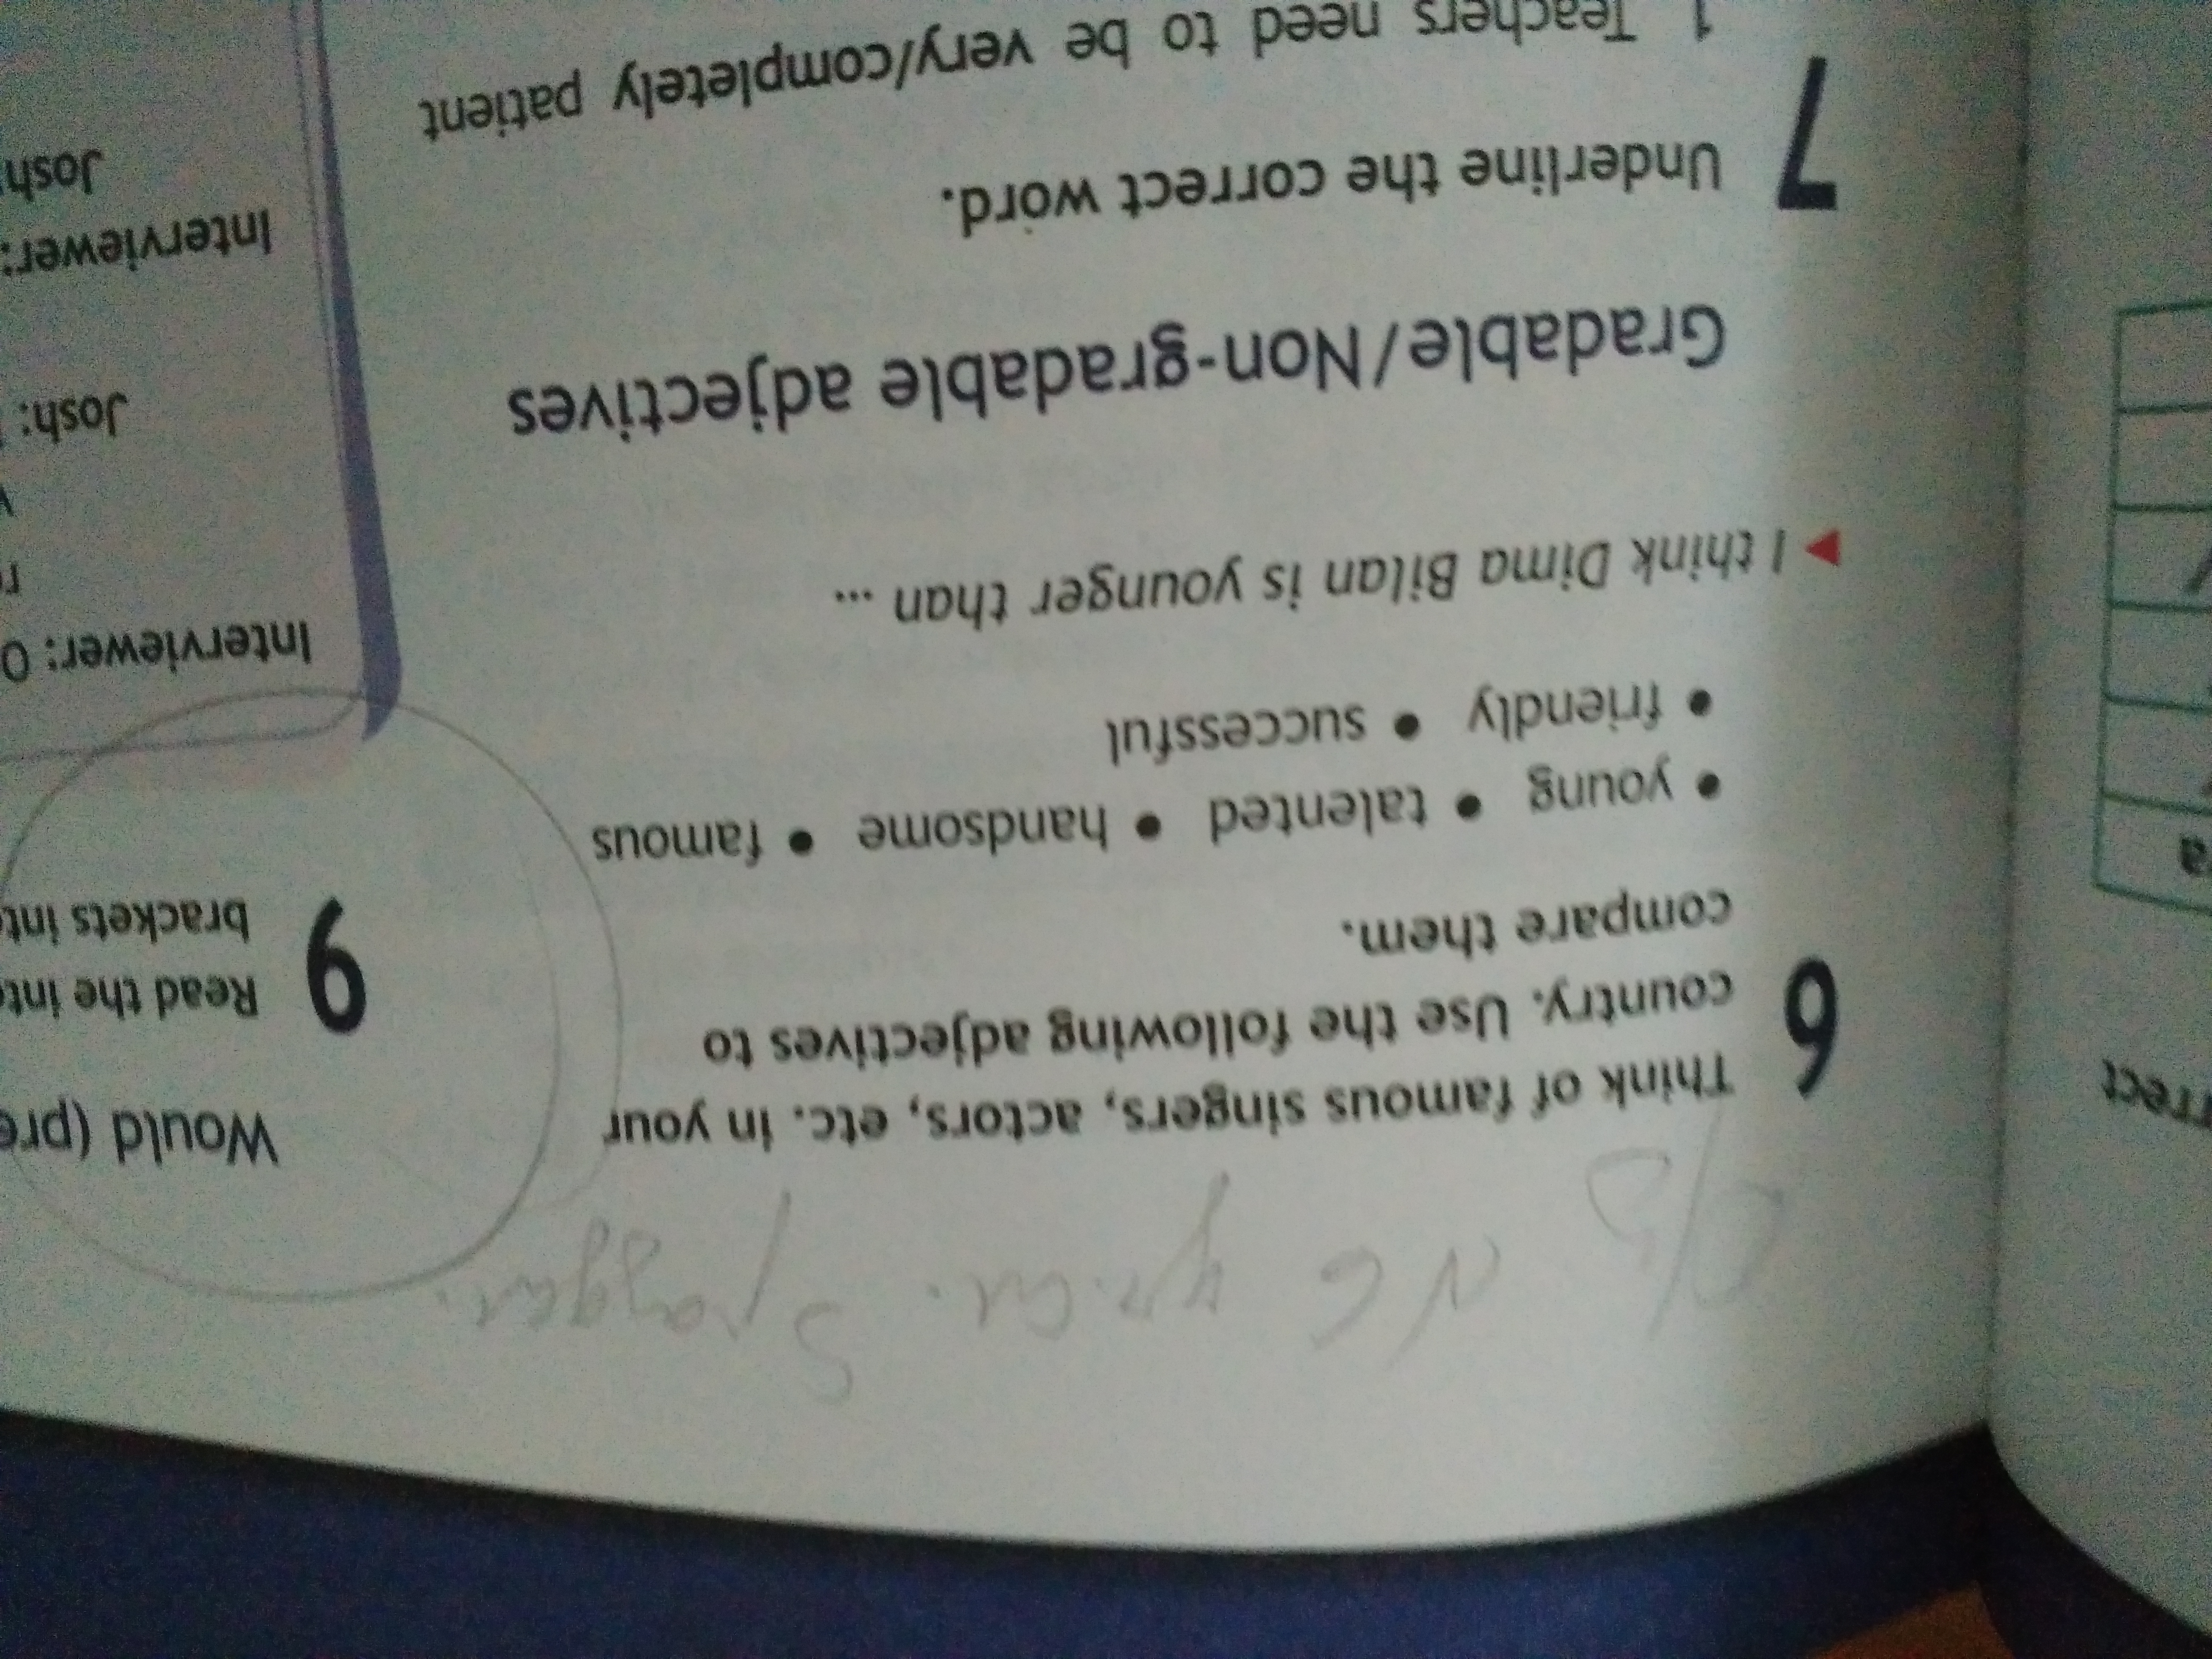 6 Think of famous singers, actors, etc. in your
country. Use the following adjectives to
compare them.
• young • talented • handsome • famous
• friendly • successful
▶ I think Dima Bilan is younger than ...
Gradable/Non-gradable adjectives
7 Underline the correct word.
1 Teachers need to be very/completely patient
Would (pre
9 Read the int
brackets int
Interviewer: O
Josh:
Interviewer:
Josh:
rrect
a